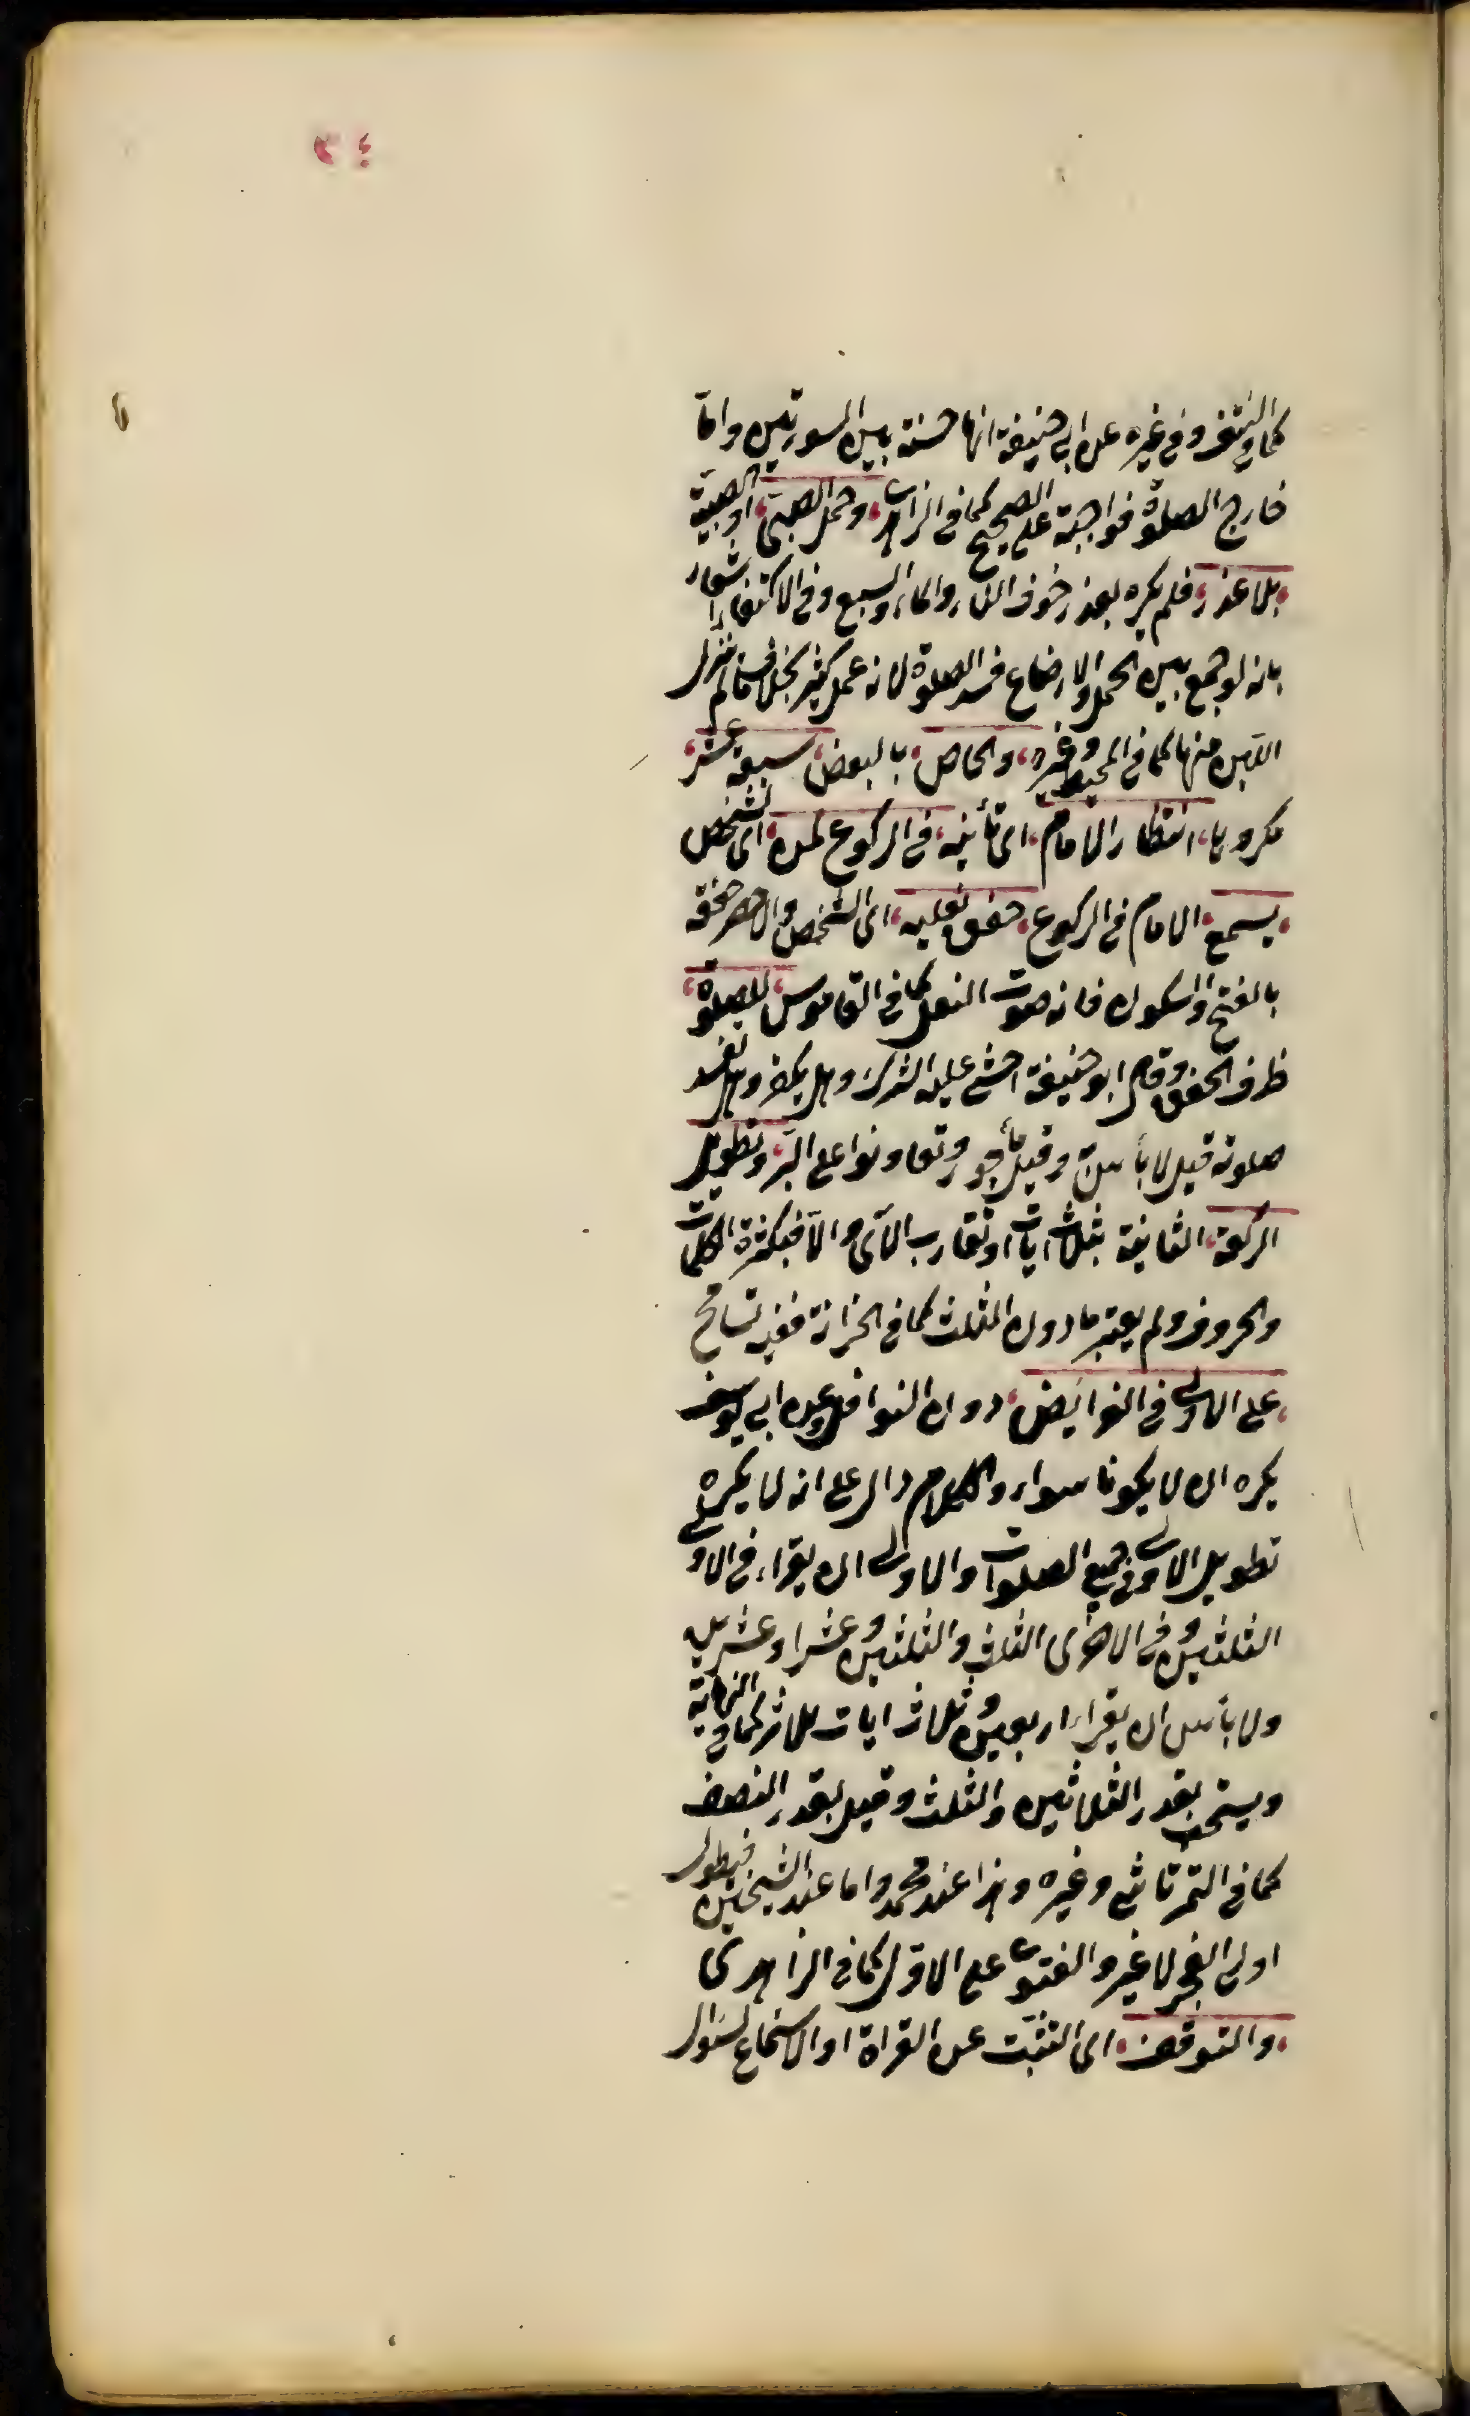 ٣٤
كما في النتف وفي غيره عن ابي حنيفة انها حسنة بين السورتين واما
خارج الصلوة فواجبة على الصحيح كما في الزاهدى وحمل الصبى او الصبية
بلا عذر فلم يكره بعذر خوف النار والماء والسبع وفي الاكتفاء اشعار
بانه لو جمع بين الحمل والارضاع فسد الصلوة لانه عمل كثير بخلاف ما لم ينزل
اللبن منها كما في المحيط وغيره والحاصل بالبعض سبعة عشر
مكروها انتظار الامام اى تأنيه في الركوع لمن اى لشخص
يسمع الامام في الركوع خفق نعليه اى الشخص والاخصر خفقه
بالفتح والسكون فانه صوت النعل كما في القاموس للصلوة
ظرف الخفق وقال ابو حنيفة اخشى عليه الشرك وهل يكفر وهل تفسد
صلوته قيل لا بأس به وقيل مأجور وتعاونوا على البر وتطويل
الركعة الثانية بثلاث ايات او تقارب الآى والا فبكثرة الكلمات
والحروف ولم يعتبر ما دون الثلث كما في الخزانة ففيه تسامح
على الاولى في الفرايض دون النوافل وعن ابي يوسف
يكره ان لا يكونا سواء والكلام دال على انه لا يكره
تطويل الاولى في جميع الصلوات والاولى ان يقراء في الاولى
الثلثين وفي الاخرى الثلث والثلثين وعشرا وعشرين
ولا بأس ان يقراء اربعين وثلاث ايات للاثر كما في النهاية
ويستحب بقدر الثلاثين والثلث وقيل بقدر النصف
كما في التمرتاشى وغيره وهذا عند محمد واما عند الشيخين فيطول
اولى الفجر لا غير والفتوى على الاول كما في الزاهدى
والتوقف اى التثبت عن القراة او الاستماع لسؤال